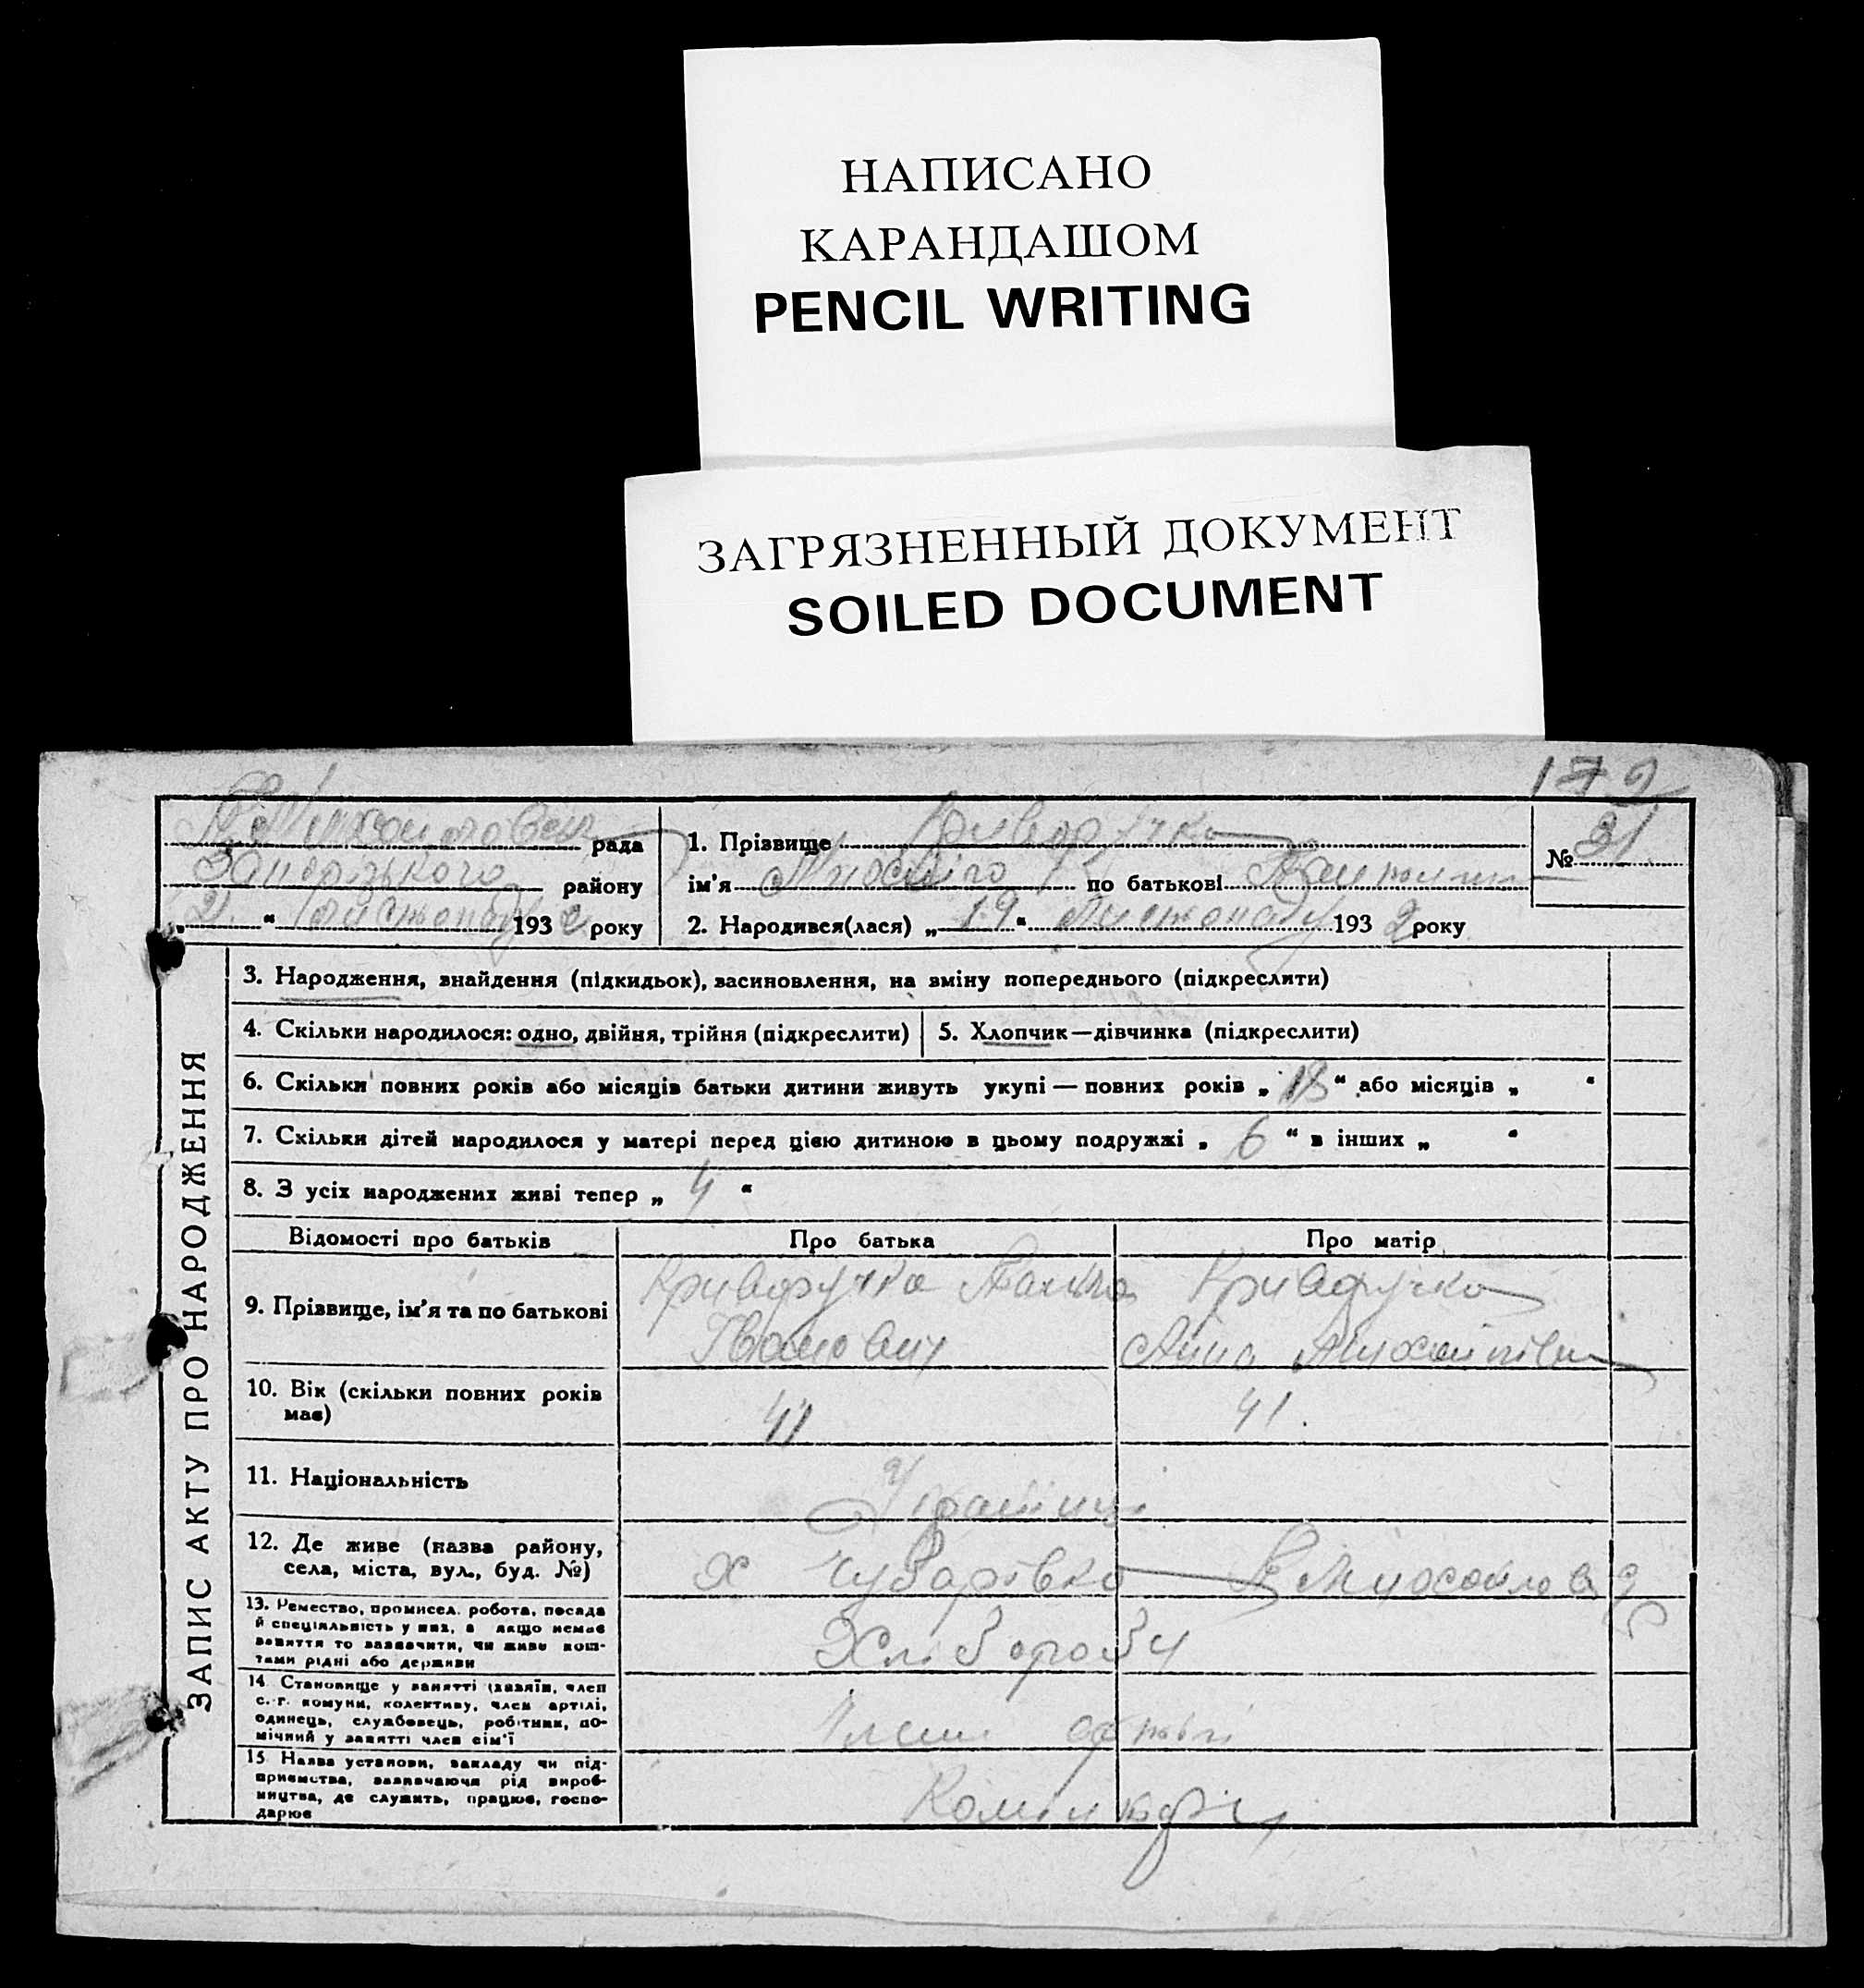 НАПИСАНО
КАРАНДАШОМ
PENCIL WRITING
ЗАГРЯЗНЕННЫЙ ДОКУМЕНТ
SOILED DOCUMENT
172
рада
Запорізького району
„ 21 “ Листопаду 1932 року
1. Прізвище Криворучко
ім'я по батькові
2. Народився(лася) „ 19 “ Листопаду 1932 року
№ 31
ЗАПИС АКТУ ПРО НАРОДЖЕННЯ
3. Народження, знайдення (підкидьок), засиновлення, на зміну попереднього (підкреслити)
4. Скільки народилося: одно, двійня, трійня (підкреслити)
5. Хлопчик—дівчинка (підкреслити)
6. Скільки повних років або місяців батьки дитини живуть укупі — повних років „ 18 “ або місяців „ “
7. Скільки дітей народилося у матері перед цією дитиною в цьому подружжі „ 6 “ в інших „ “
8. З усіх народжених живі тепер „ 4 “
Відомості про батьків Про батька Про матір
9. Прізвище, ім'я та по батькові
Криворучко Криворучко
Іванович Анна Михайлівна
10. Вік (скільки повних років має)
41 41.
11. Національність
Українці
12. Де живе (назва району, села, міста, вул., буд. №)
х
13. Ремество, промисел, робота, посада й спеціяльність у них, а якщо немає заняття то зазначити, чи живе коштами рідні або держави
Хлібороби
14. Становище у занятті (хазяїн, член с.-г. комуни, колективу, член артілі, одинець, службовець, робітник, помічний у занятті член сім'ї
Члени артілі
15. Назва установи, закладу чи підприємства, зазначаючи рід виробництва, де служить, працює, господарює